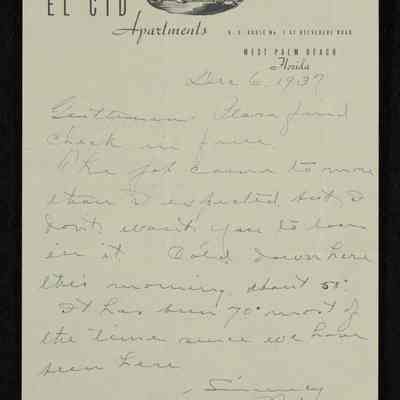 EL CID
Apartments
U. S. ROUTE No. 1 AT BELVEDERE ROAD
WEST PALM BEACH
Florida
Dec 6. 1937
Gentlemen Please find
check in full
The job came to more
than I expected but I
dont want you to loose
in it. Cold down here
this morning about 50°
It has been 70° most of
the time since we have
been here
Sincerely